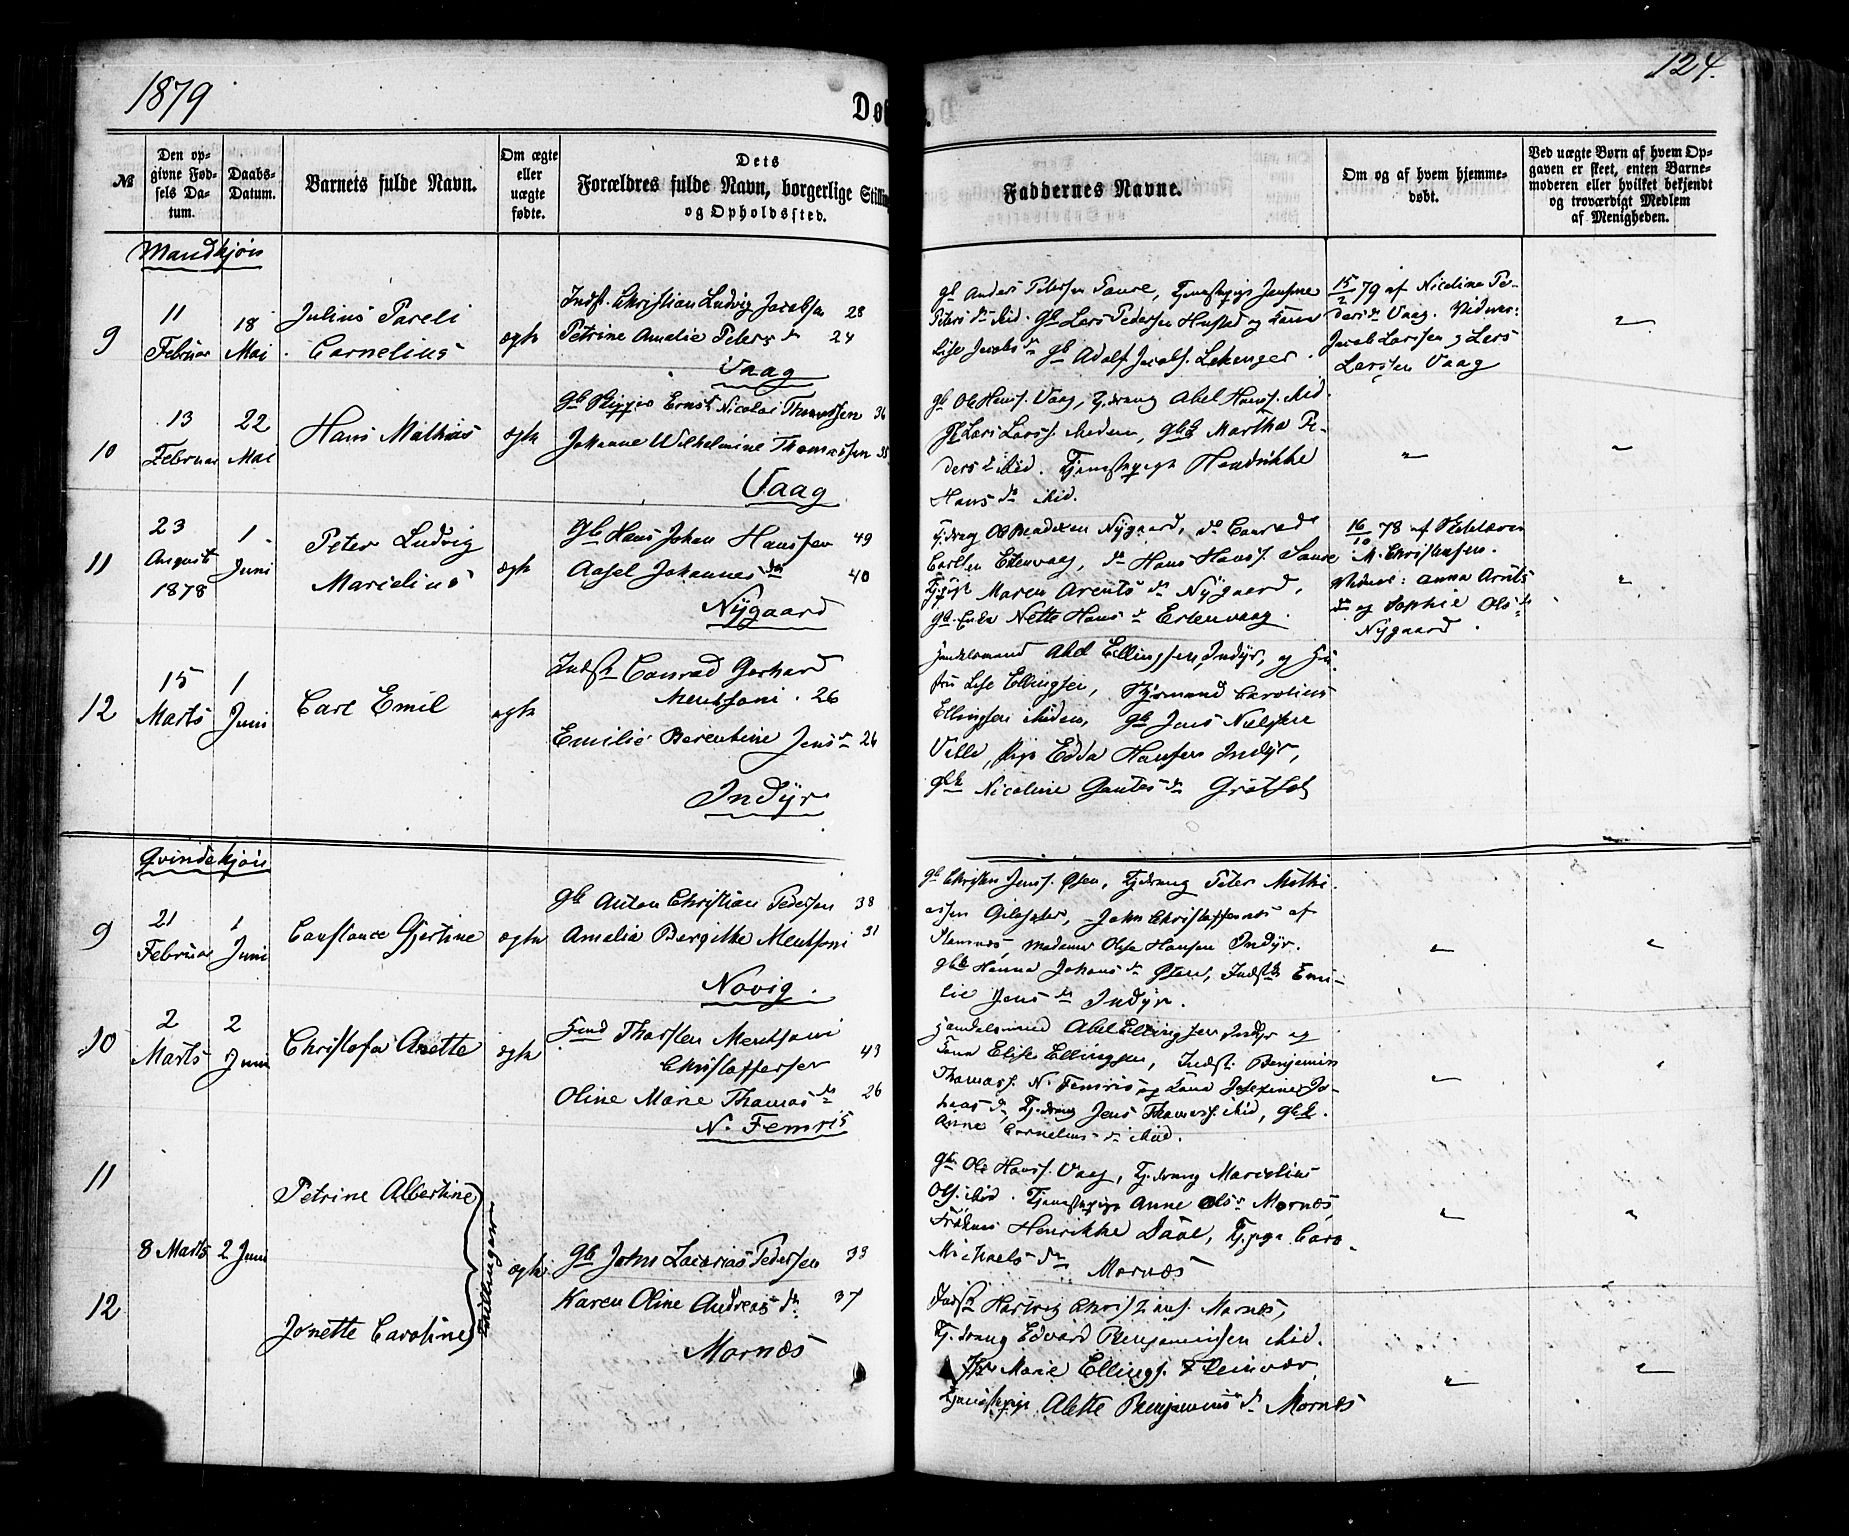 1879
124.
Døb
№
Den op-
givne Fød-
sels Da-
tum.
Daabs-
Datum.
Barnets fulde Navn.
Om ægte
eller
uægte
fødte.
Dets
Forældres fulde Navn, borgerlige Stilling
og Opholdssted.
Faddernes Navne.
Om og af hvem hjemme-
døbt.
Ved uægte Børn af hvem Op-
gaven er skeet, enten Barne-
moderen eller hvilket bekjendt
og troværdigt Medlem
af Menigheden.
Mandkjøn
9
11
Februar
18
Mai
Julius Pareli
Cornelius
ægte
Indst. Christian Ludvig Jacobsen 28
Petrine Amalie Peters dr 24
Vaag
gb Anders Petersen Saure,
Peters dr ibid. Gb Lars Pedersen Hustad og Kone
Lise Jacobs dr gb Adolf Jacobs. Lekanger.
15/2 79 af Nicoline Pe-
ders dr Vaag. Vidner:
Jacob Larssen og Lars
Larsen Vaag
"
10
13
Februar
22
Mai
Hans Mathias
ægte
Ernst Nicolai Thomassen 36
Johanne Wilhelmine Thomassen 35
Vaag
gb Ole Hanss. Vaag, Tj.dreng Abel Hanss. ibid.
Lars Larss. Meden, gbk Martha Pe-
ders d ibid. Tjenestepige Hendrikke
Hans dr ibid.
"
"
11
23
August
1878
1
Juni
Peter Ludvig
Marcelius
ægte
Gb Hans Johan Hanssen 49
Aasel Johannes dr 40
Nygaard
Tj.dreng Ole Nygaard, do Conrad
Carlsen Estenvaag, do Hans Hanss. Saure
Maren Arents dr Nygaard,
gb. Enke Nette Hans dr Estenvaag.
16/10 78 af
M. Christensen.
Vidner: Anna Arnts
dr og Sophie Ols dr
Nygaard.
"
12
15
Marts
1
Juni
Carl Emil
ægte
Indst Conrad Gerhard
Mentsoni. 26
Emilie Berentine Jens dr 26
Indyr
Handelsmand Abel Ellingsen Indyr, og Hu-
stru Lise Ellingsen, Carolius
Ellingsen Meden, gb Jens Nielsen
Pige Edda Hansen Indyr,
gbk Nicoline Gantes dr
Qvindekjøn
9
21
Februar
1
Juni
Constance Gjertine
ægte
Gb Anton Christian Pedersen 38
Amalia Bergitte Mentsoni 31
Novig.
gb Christen Jens. Øsen, Tj.dreng Peter Mathi-
assen John Christoffersen af
Madame Olise Hansen Indyr.
gbk Hanna Johans dr Øsen, Indstk Emi-
lie Jens dr Indyr.
"
"
10
2
Marts
2
Juni
Christofa Anette
ægte
Thorsten Mentsoni
Christoffersen 43
Oline Marie Thomas dr 26
N. Femris
Handelsmand Abel Ellingsen Indyr og
Kone Elise Ellingsen, Indst. Benjamin
Thomass. N. Femris og Kone Josefine Jo-
hans dr, Tj.dreng Jens Thomass. ibid, gbk.
Anne Cornelius dr ibid.
"
11
Petrine Albertine
8 Marts
2 Juni
Tvillinger
ægte
Gb John Zacarias Pedersen 33
Karen Oline Andreas dr. 37
Mornæs
12
Jonette Caroline
gb Ole Hanss. Vaag, Tj.dreng Marcelius
Ols. ibid. Tjenestepige Anne Ols dr Mornæs,
Frøken Henrikke Daae, Tj.pige Caro
Michaels dr
Mornæs
"
"
Indst Hartvig Christians. Mornæs,
Tj.dreng Edvard Benjaminsen ibid.
Marie Ellings. Fleinvær
Tjenestepige Alette Benjamins dr Mornæs
"
"